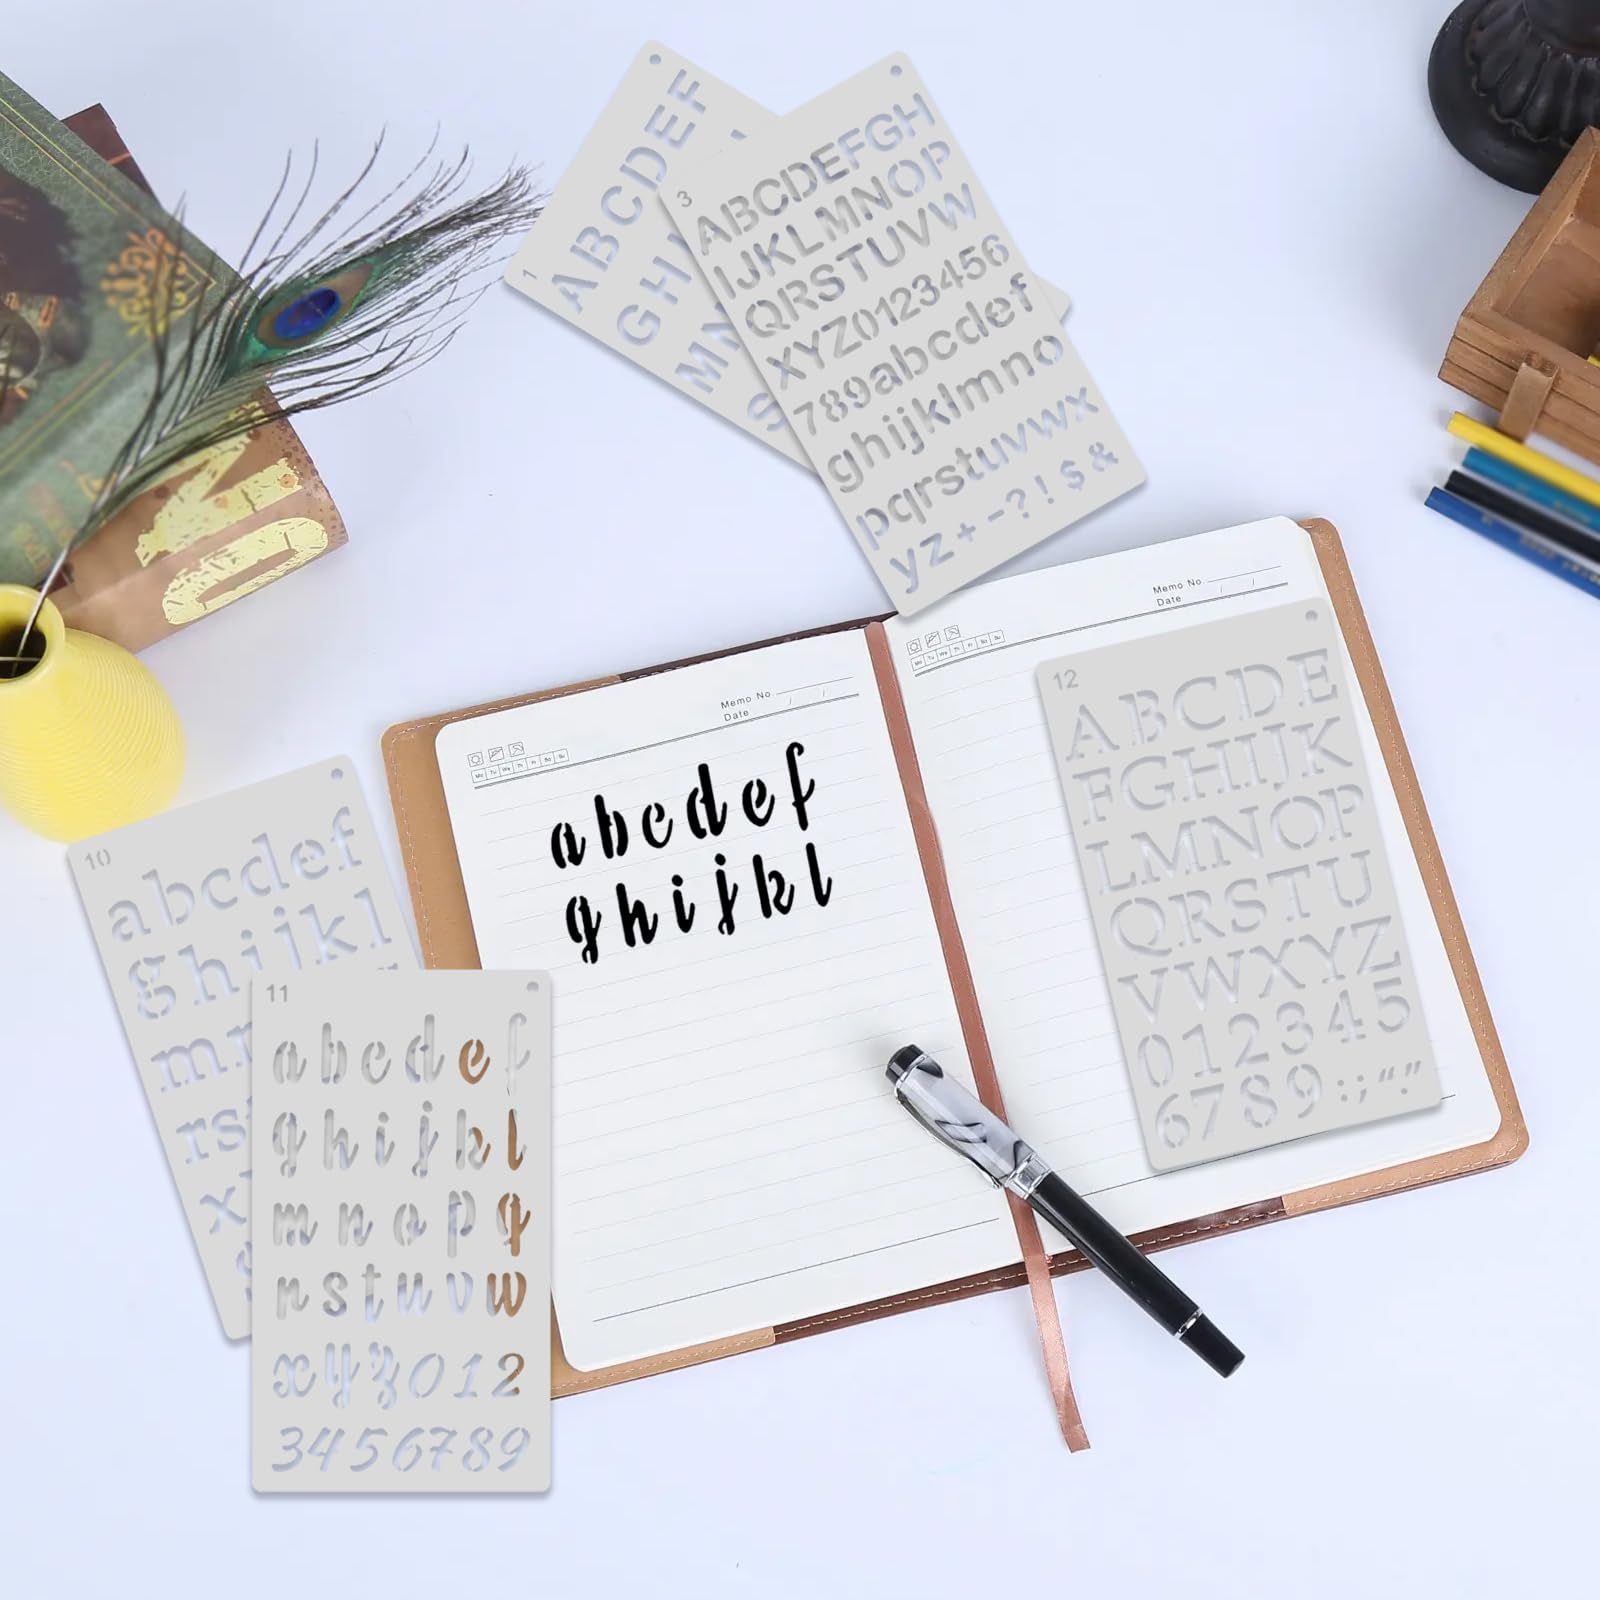 1
ABCDEF
GH
MN
S
3
ABCDEFGH
IJKLMNOP
QRSTUVW
XYZ0123456
789abcdef
ghijklmno
pqrstuvwx
yz+-?!$&
Memo No.
Date / /
Mo Tu We Th Fr Sa Su
Memo No.
Date / /
Mo Tu We Th Fr Sa Su
abcdef
ghijkl
12
ABCDE
FGHIJK
LMNOP
QRSTU
VWXYZ
012345
6789:;“.”
10
abcdef
ghijkl
m
rs
x
11
abcdef
ghijkl
mnopq
rstuvw
xyz012
3456789